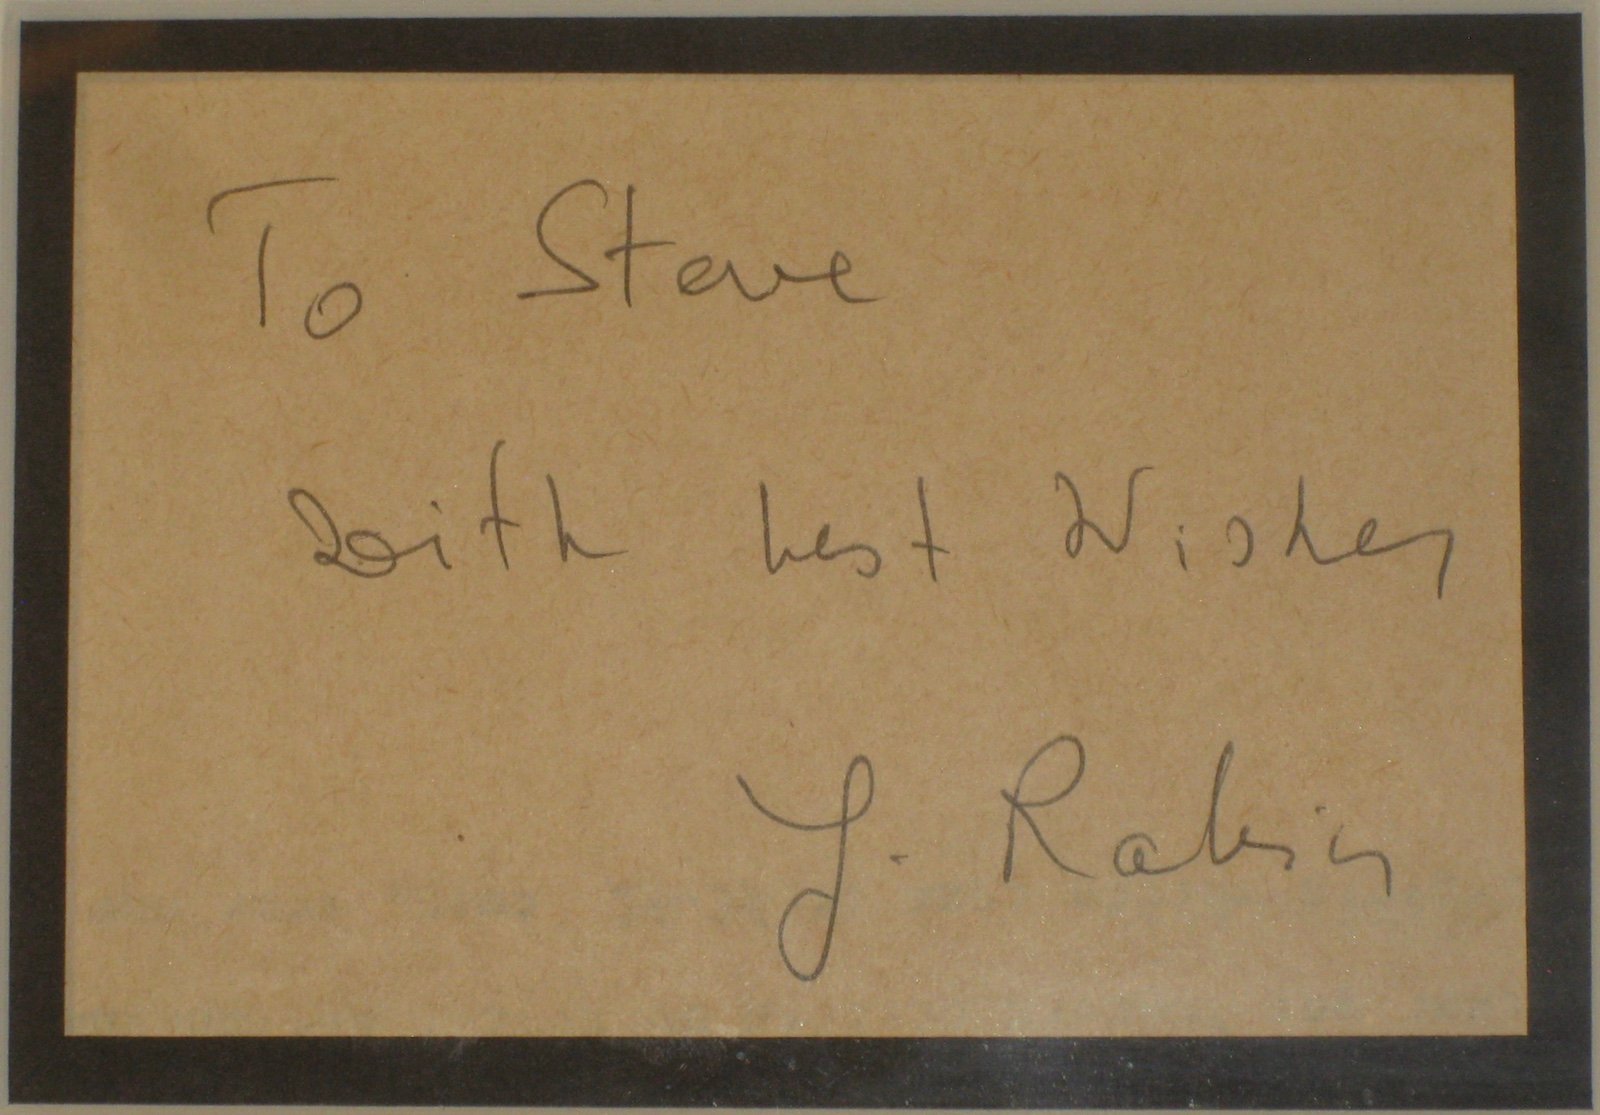 To Steve
with best Wishes
Y. Rabin